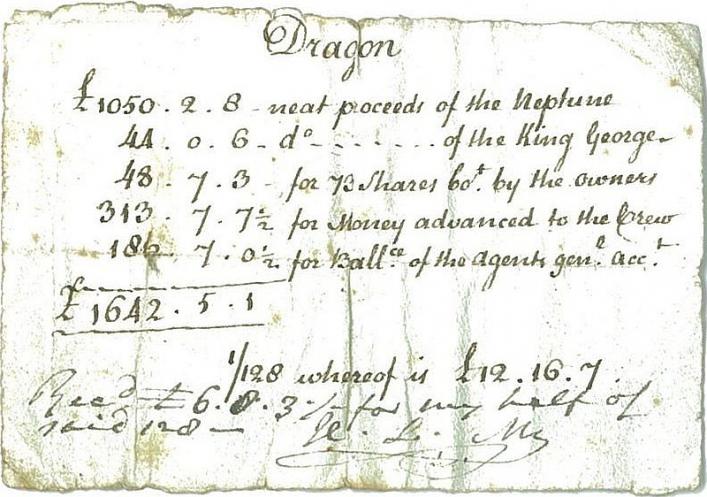 Dragon
£1050 . 2 . 8 - neat proceeds of the Neptune
44 . 0 . 6 - dᵒ - - - - - - . of the King George
48 . 7 . 3 - for 73 Shares boᵗ. by the owners
313 . 7 . 7½ for Money advanced to the Crew
186 . 7 . 0½ for Ballᶜᵉ of the Agents genˡ. accᵗ.
£1642 . 5 . 1
1/128 whereof is £12 . 16 . 7
Recᵈ £6 . 8 . 3½ for my half of
said 128 —